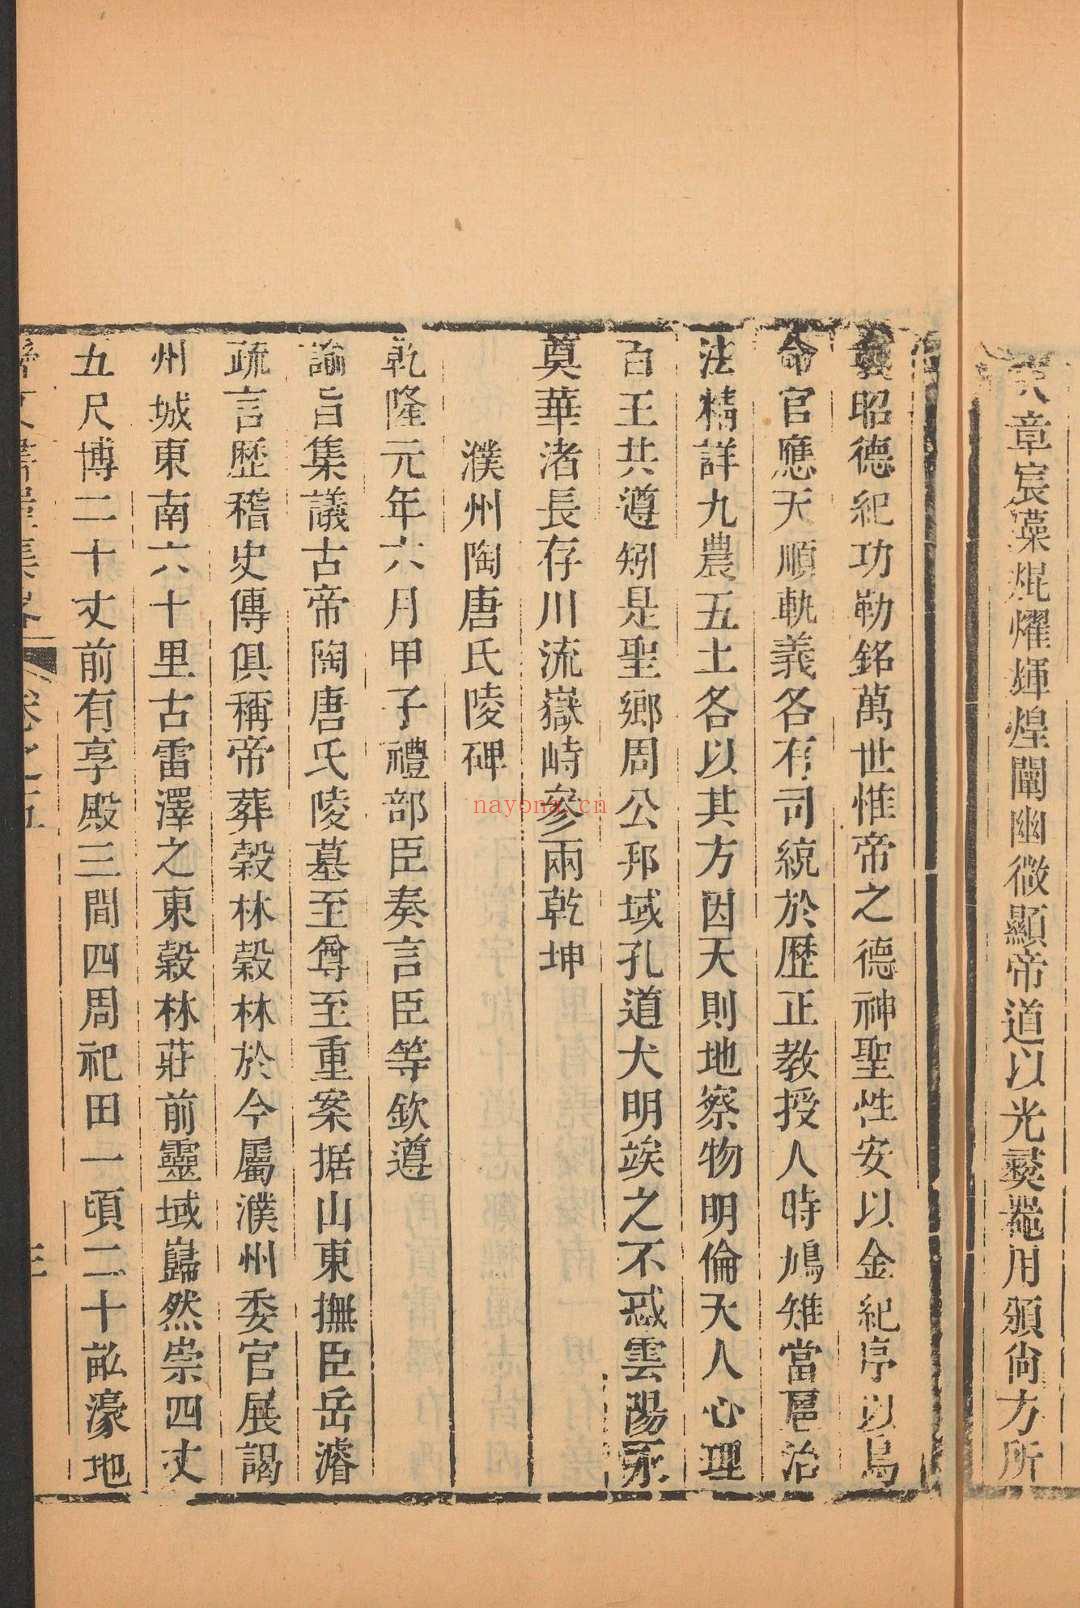 章宸藻焜燿輝煌闡幽微顯帝道以光爰鼇用頒尙方所
昭德紀功勒銘萬世惟帝之德神聖性安以金紀序以鳥
命官應天順軌義各有司統於歴正教授人時鳩雉當扈治
法精詳九農五土各以其方因天則地察物明倫天人心理
百王共遵矧是聖鄉周公邦域孔道大明竢之不惑雲陽永
奠華渚長存川流嶽峙參兩乾坤
濮州陶唐氏陵碑
乾隆元年六月甲子禮部臣奏言臣等欽遵
諭旨集議古帝陶唐氏陵墓至尊至重案据山東撫臣岳濬
疏言歴稽史傳俱稱帝葬穀林穀林於今屬濮州委官展謁
州城東南六十里古雷澤之東穀林莊前靈域巋然崇四丈
五尺博二十丈前有享殿三間四周祀田一頃二十畝濠地
卷之五
三
nayona.cn